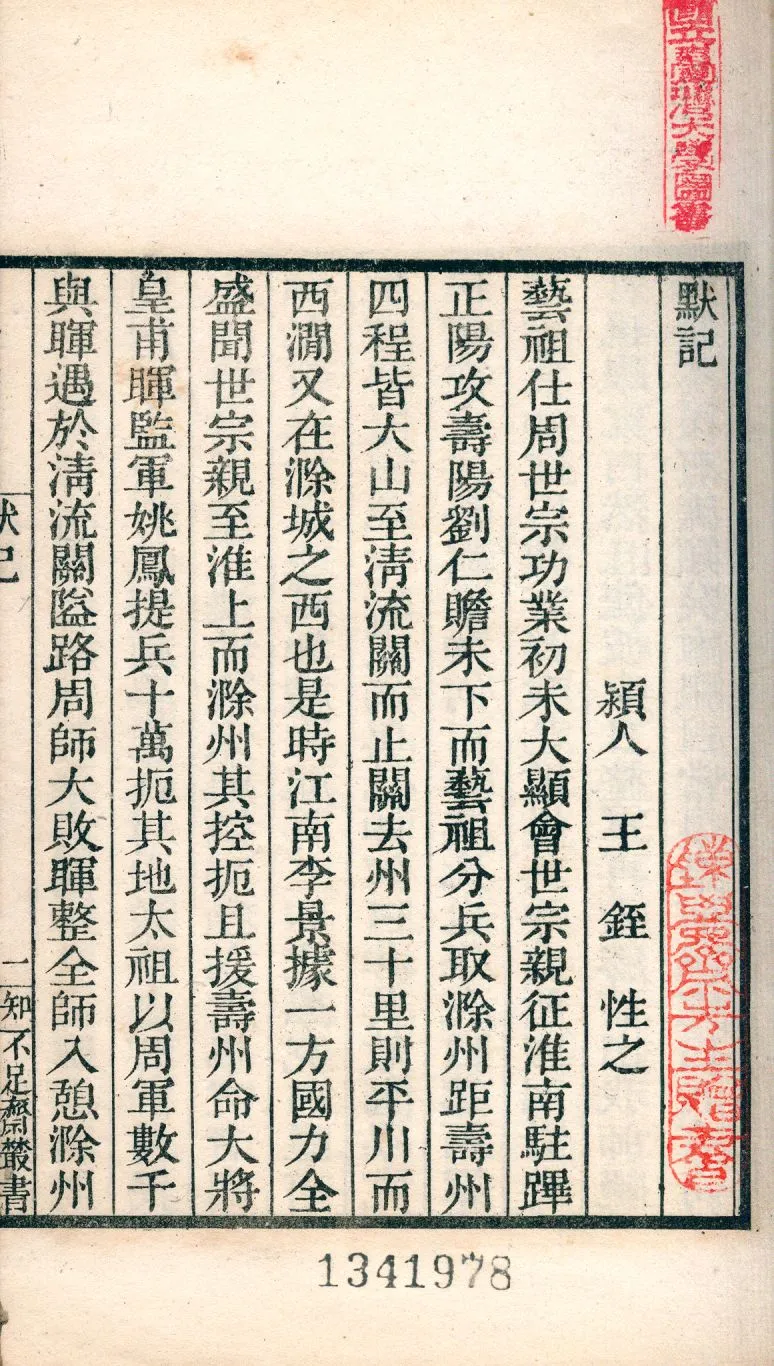 國立臺灣大學圖書
默記
潁人 王 銍 性之
藝祖仕周世宗功業初未大顯會世宗親征淮南駐蹕
正陽攻壽陽劉仁贍未下而藝祖分兵取滁州距壽州
四程皆大山至淸流關而止關去州三十里則平川而
西澗又在滁城之西也是時江南李景據一方國力全
盛聞世宗親至淮上而滁州其控扼且援壽州命大將
皇甫暉監軍姚鳳提兵十萬扼其地太祖以周軍數千
與暉遇於淸流關隘路周師大敗暉整全師入憩滁州
默記
一
知不足齋叢書
1341978